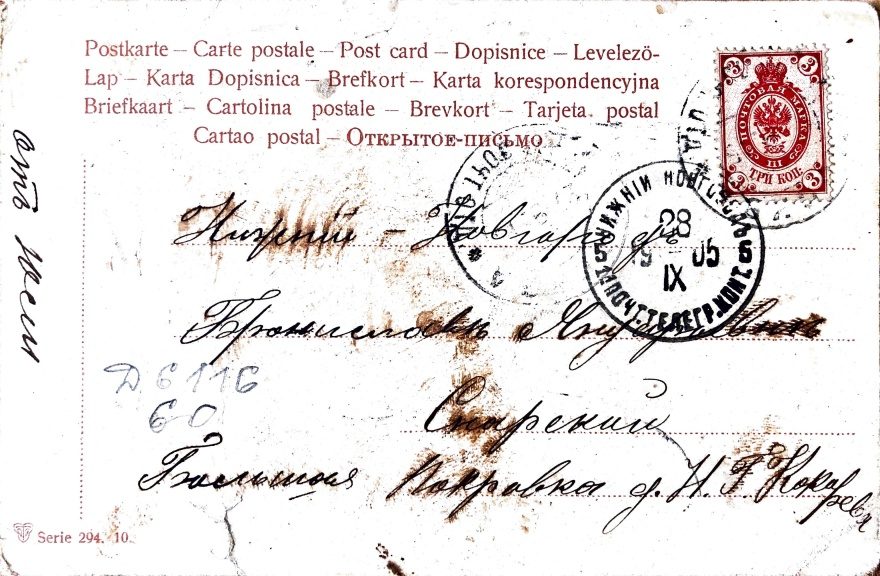 Postkarte – Carte postale – Post card – Dopisnice – Levelező-
Lap – Karta Dopisnica – Brefkort – Karta korespondencyjna
Briefkaart – Cartolina postale – Brevkort – Tarjeta postal
Cartao postal – ОТКРЫТОЕ-ПИСЬМО
3 3
ПОЧТОВАЯ МАРКА
III
ТРИ КОП.
3 3
НИЖНІЙ НОВГОРОДЪ
28
5 19 05 5
IX
ПОЧТ.ТЕЛЕГР.КОНТ.
Нижній - Новгородъ
Брониславѣ
Д 6116
60
Снарской
Большая Покровка д. Н. Г. Кокарева
отъ
Serie 294. 10.